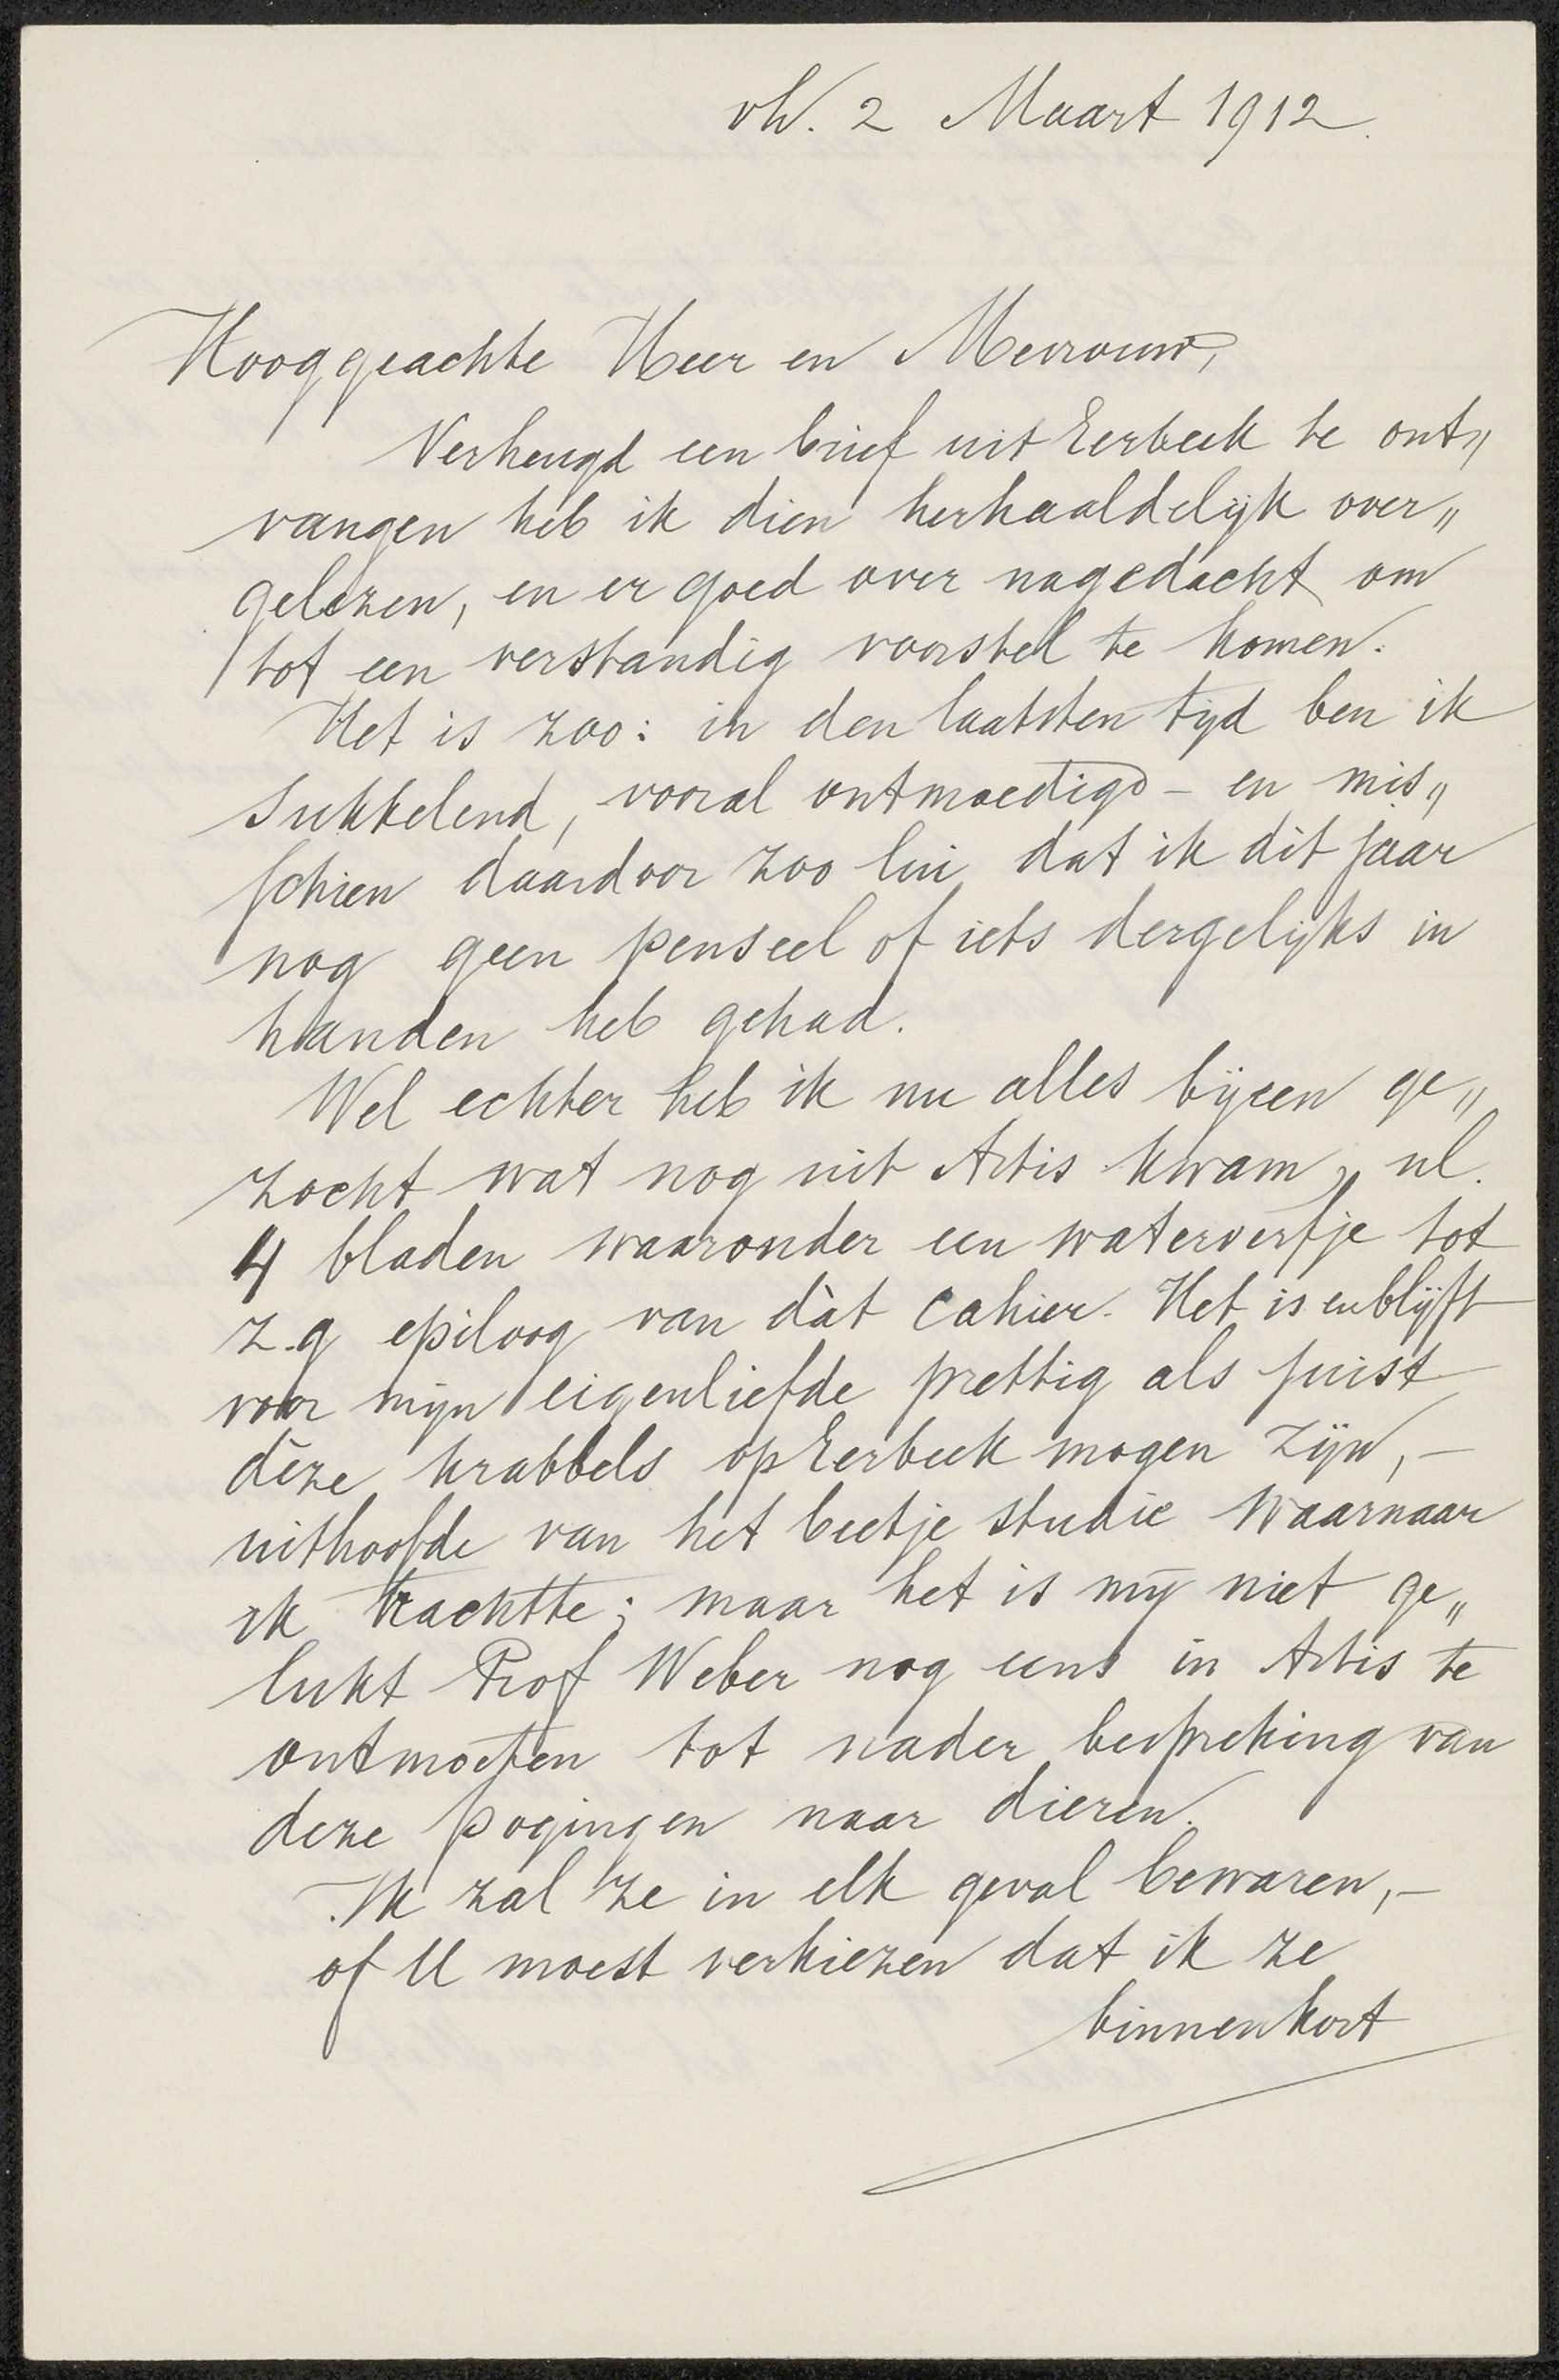 vh. 2 Maart 1912.
Hooggeachte Heer en Mevrouw,
Verheugd een brief uit Eerbeek te ont„
vangen heb ik dien herhaaldelijk over„
gelezen, en er goed over nagedacht om
tot een verstandig voorstel te komen.
Het is zoo: in den laatsten tijd ben ik
sukkelend, vooral ontmoedigd – en mis„
schien daardoor zoo lui dat ik dit jaar
nog geen penseel of iets dergelijks in
handen heb gehad.
Wel echter heb ik nu alles bijeen ge„
zocht wat nog uit Artis kwam, nl.
4 bladen waaronder een waterverfje tot
z.g epiloog van dàt cahier. Het is en blijft
voor mijn eigenliefde prettig als juist
dèze krabbels op Eerbeek mogen zijn, –
uithoofde van het beetje studie waarnaar
ik trachtte; maar het is mij niet ge„
lukt Prof Weber nog eens in Artis te
ontmoeten tot nader bespreking van
deze pogingen naar dieren.
Ik zal ze in elk geval bewaren, –
of U moest verkiezen dat ik ze
binnenkort